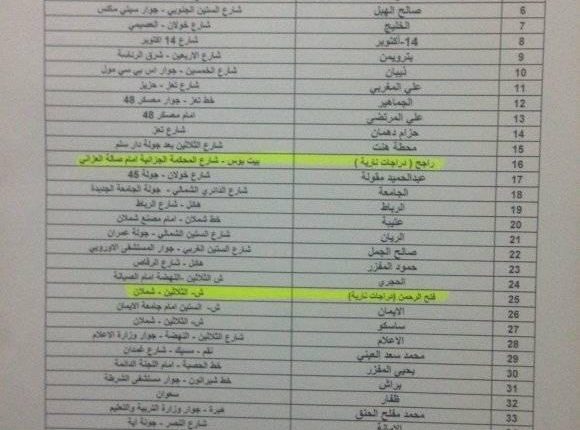 6 صالح الهيل شارع الستين الجنوبي - جوار سيتي ماكس
7 الخليج شارع خولان - العصيمي
8 14-أكتوبر شارع 14 اكتوبر
9 بترويمن شارع الاربعين - شرق الرئاسة
10 ذيبان شارع الخمسين - جوار اس بي سي مول
11 علي المغربي شارع تعز - حزيز
12 الجماهير خط تعز - جوار معسكر 48
13 علي المرتضى امام معسكر 48
14 حزام دهمان شارع تعز
15 محطة هنت شارع الثلاثين بعد جولة دار سلم
16 راجح ( دراجات نارية ) بيت بوس - شارع المحكمة الجزائية امام صالة العزاني
17 عبدالحميد مقولة شارع خولان - جولة 45
18 الجامعة شارع الدائري الشمالي - جولة الجامعة الجديدة
19 الرباط هائل - شارع الرباط
20 عتيبة خط شملان - امام مصنع شملان
21 الريان شارع الستين الشمالي - جولة عمران
22 صالح الجمل شارع الستين الغربي - جوار المستشفى الاوروبي
23 حمود المقزر هائل - شارع الرقاص
24 الحجري ش الثلاثين - النهضة امام الصيانة
25 فتح الرحمن (دراجات نارية) ش- الثلاثين - شملان
26 الايمان ش- الستين امام جامعة الايمان
27 ساسكو ش- الثلاثين - شملان
28 الاعلام شارع الثلاثين - النهضة - جوار وزارة الاعلام
29 محمد سعد العيني نقم - مسيك - شارع غمدان
30 يحيى المقزر خط الحصبة - امام اللجنة الدائمة
31 براش خط شيراتون - جوار مستشفى الشرطة
32 ظفار سعوان
33 محمد مفلح الحنق هبرة - جوار وزارة التربية والتعليم
شارع النصر - جولة آية